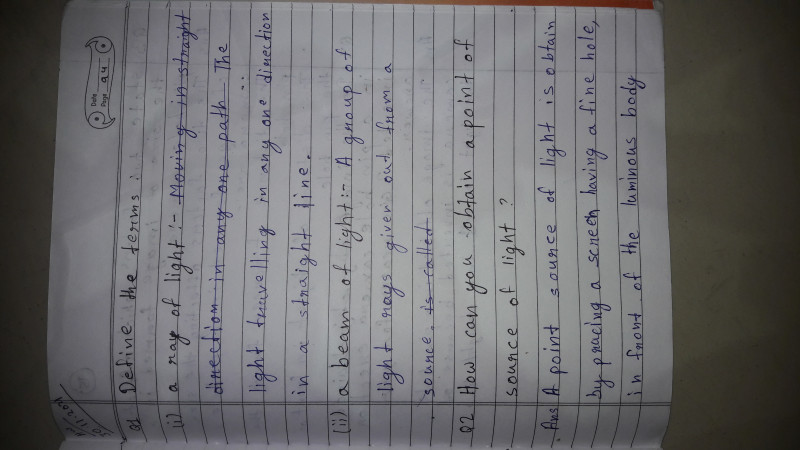 Date
Page 94
Q1 Define the terms:
(i) a ray of light :- Moving in straight
direction in any one path The
light travelling in any one direction
in a straight line.
(ii) a beam of light :- A group of
light rays given out from a
source. is called
Q2 How can you obtain a point of
source of light ?
Ans A point source of light is obtain
by pracing a screen having a fine hole,
in front of the luminous body